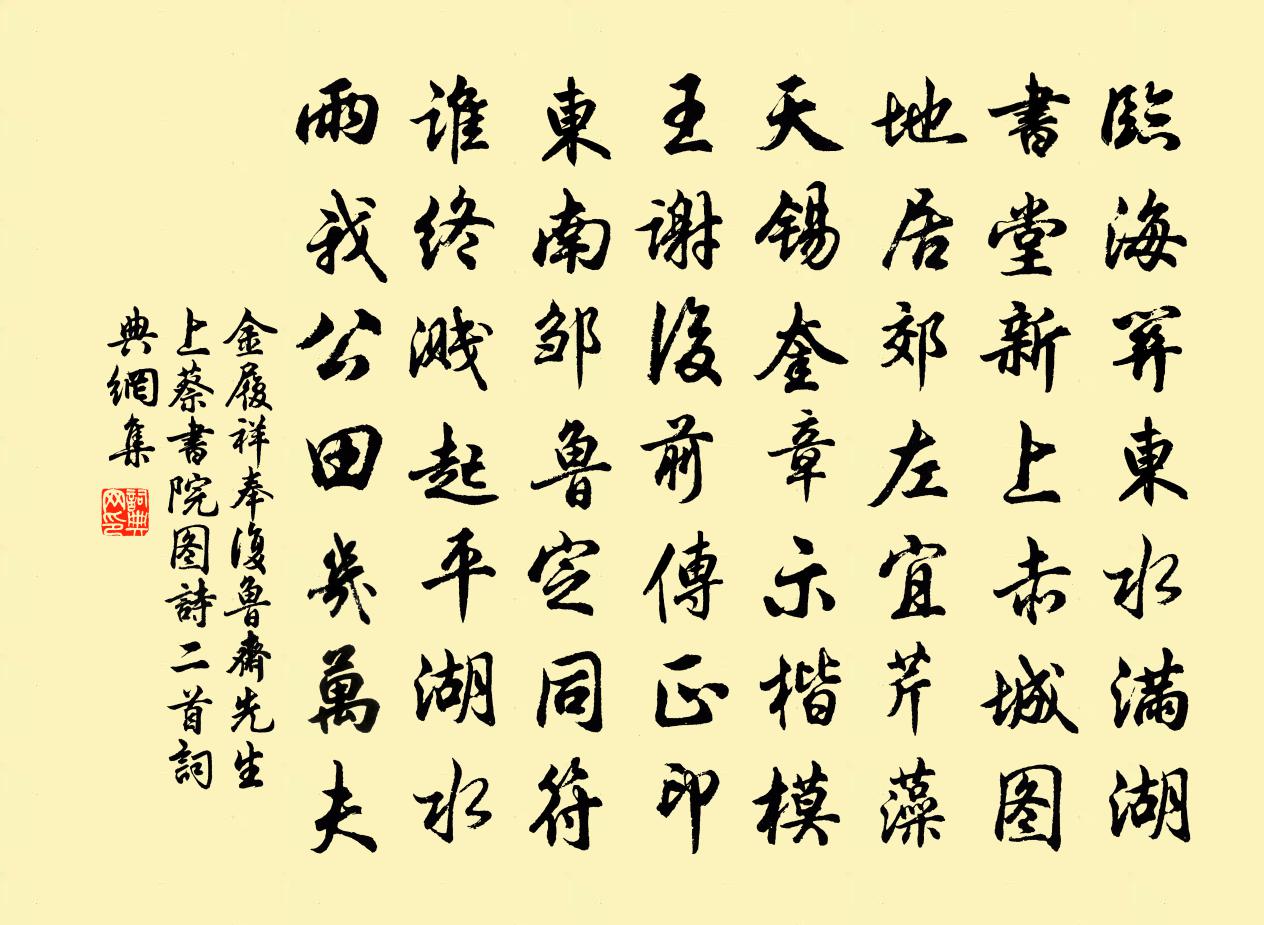 臨海冥東水滿湖
書堂新上赤城图
地居郊左宜芹藻
天錫奎章示楷模
王謝後前傳正印
東南邹魯定同符
誰终溅起平湖水
雨我公田幾萬夫
金履祥奉復魯齋先生
上蔡書院图詩二首詞
典網集
詞典网印